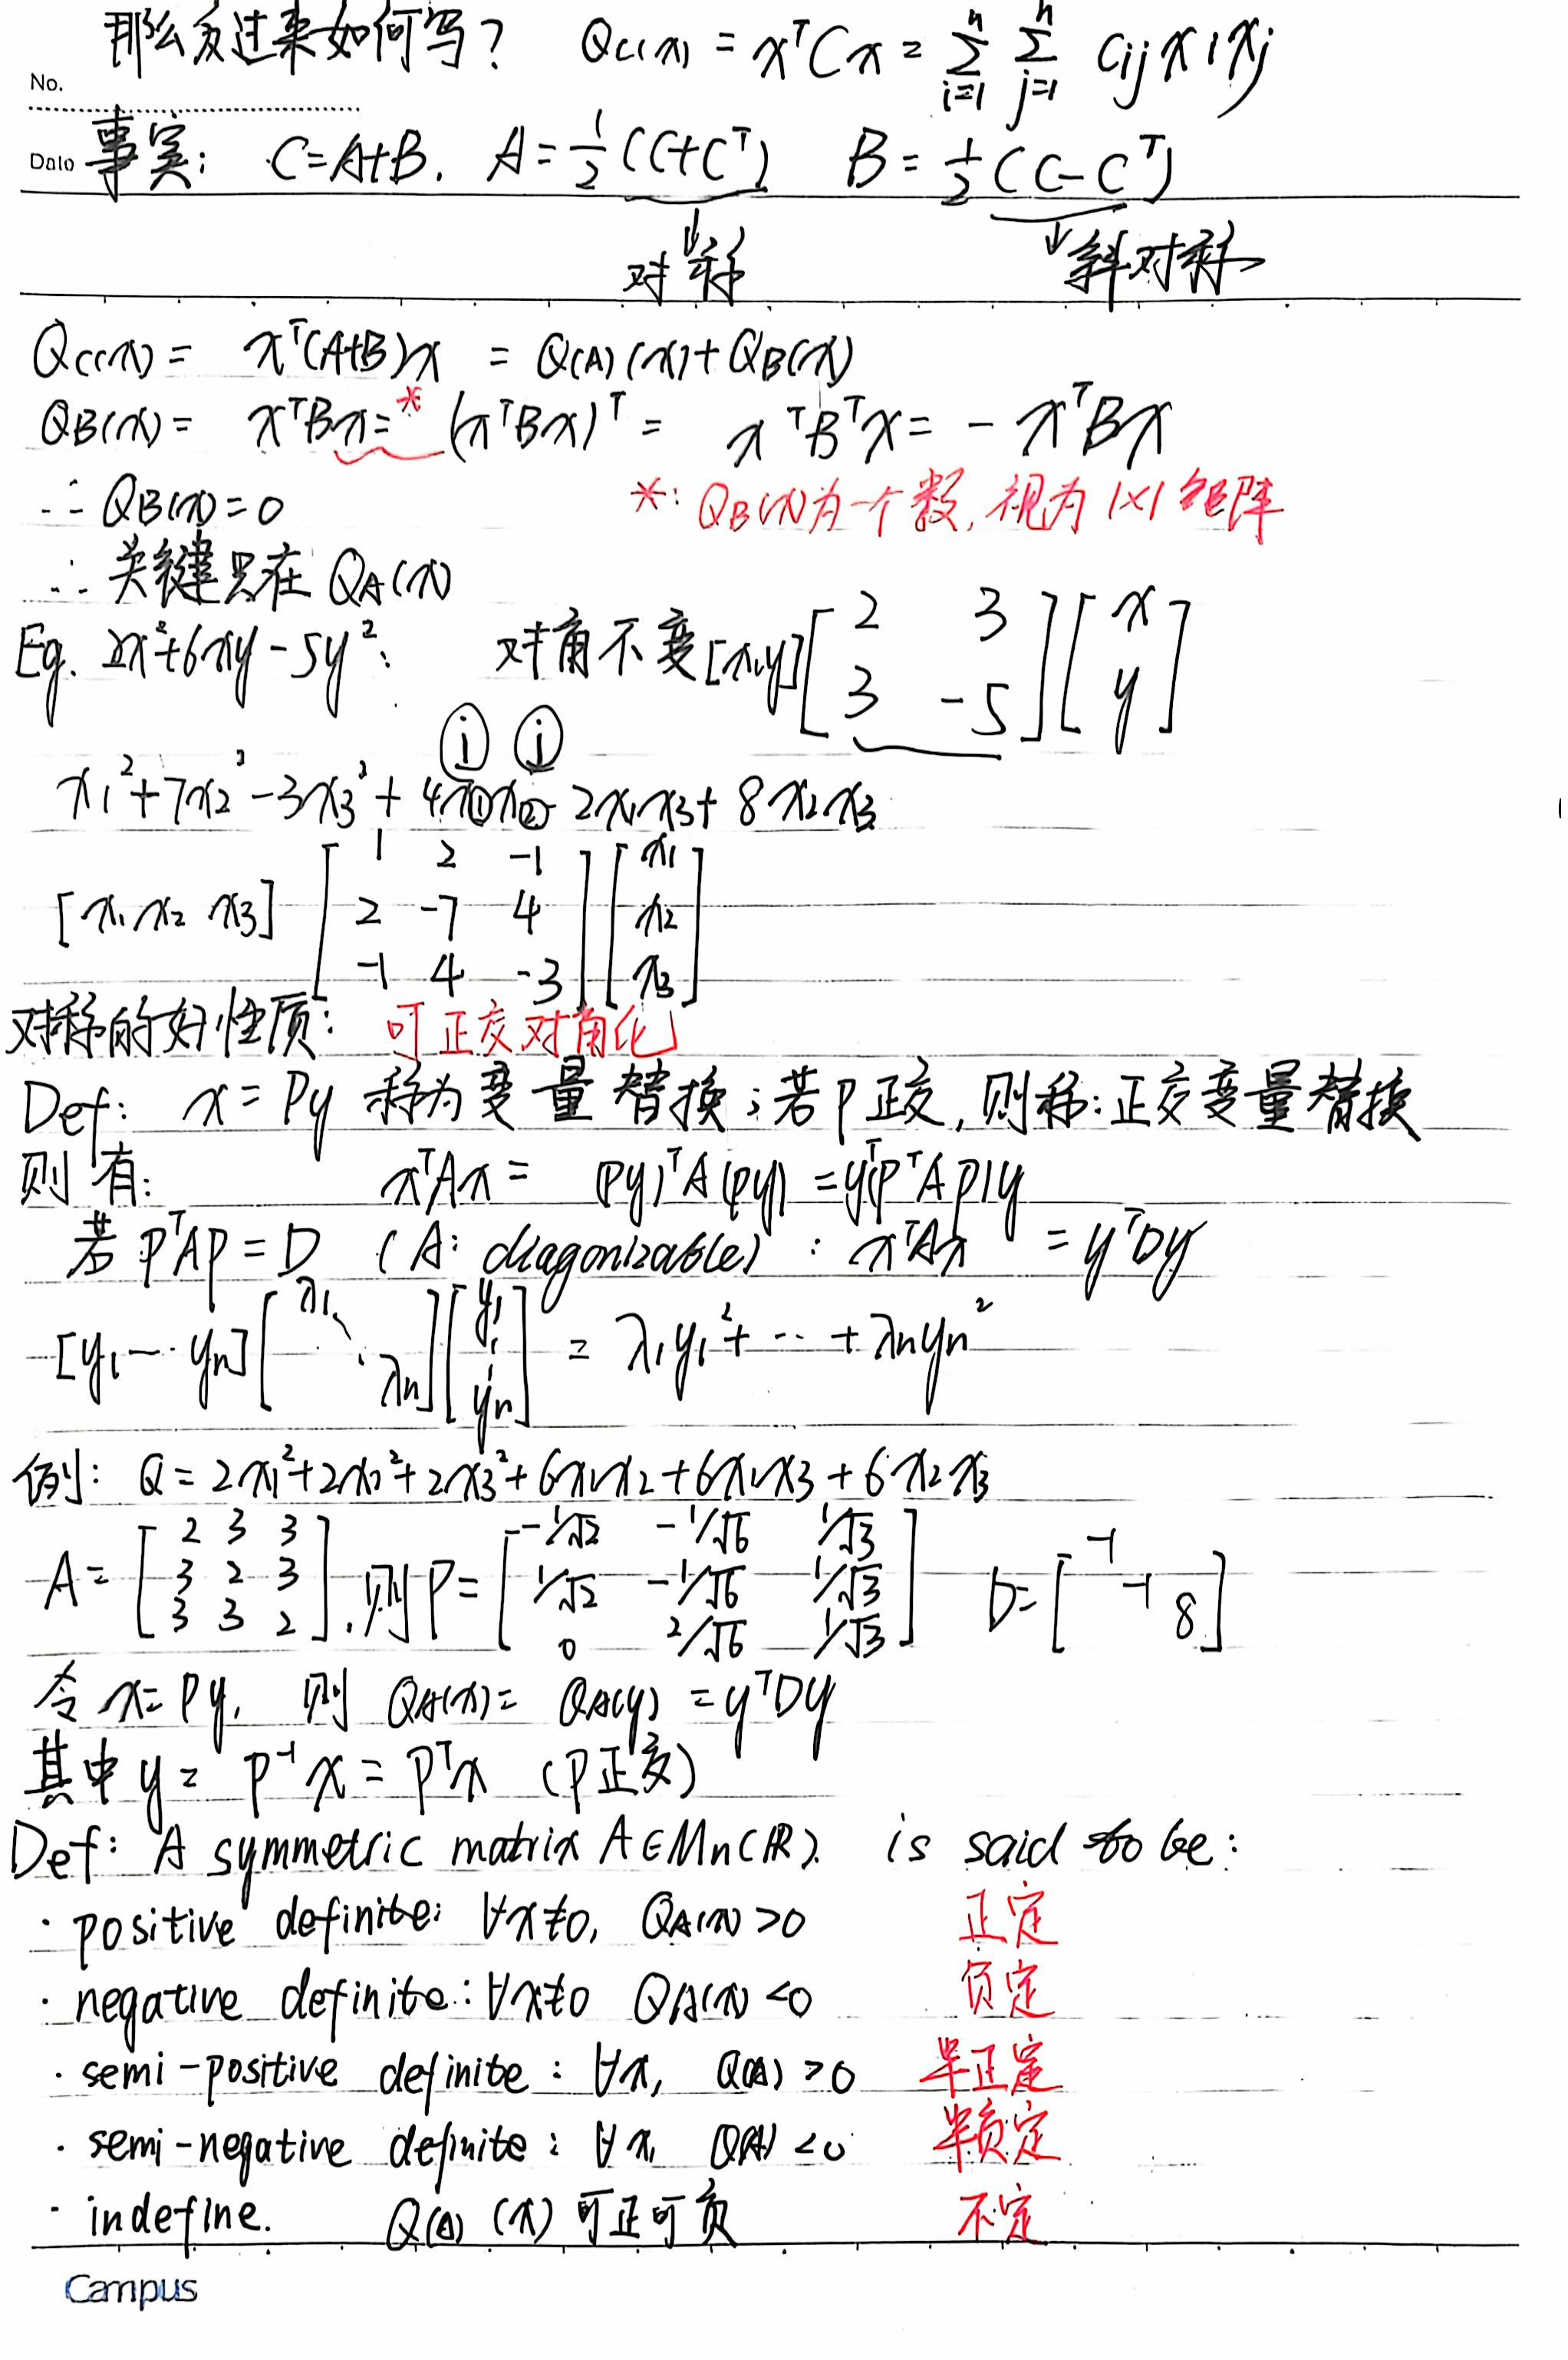 那么反过来如何写? Qc(x) = xᵀCx = Σᵢ₌₁ⁿ Σⱼ₌₁ⁿ cij xi xj
No.
Date 事实: C=A+B. A=½(C+Cᵀ) B=½(C-Cᵀ)
↓对称 ↓斜对称
Qc(x) = xᵀ(A+B)x = Q(A)(x)+QB(x)
QB(x) = xᵀBx =* (xᵀBx)ᵀ = xᵀBᵀx = - xᵀBx
∴ QB(x)=0 *: QB(x)为一个数, 视为1×1矩阵
∴ 关键只在 QA(x)
Eg. 2x²+6xy-5y²: 对角不变 [x,y] [2 3; 3 -5] [x; y]
ⓘ ⓙ
x₁²+7x₂²-3x₃²+4x①x②-2x₁x₃+8x₂x₃
[x₁ x₂ x₃] [1 2 -1; 2 -7 4; -1 4 -3] [x₁; x₂; x₃]
对称的好性质: 可正交对角化
Def: x=Py 称为变量替换; 若P正交, 则称: 正交变量替换
则有: xᵀAx = (Py)ᵀA(Py) = yᵀ(PᵀAP)y
若PᵀAP=D (A: diagonizable) : xᵀAx = yᵀDy
[y₁ ⋯ yn] [λ₁ ⋱ λn] [y₁ ⋮ yn] = λ₁y₁²+⋯+λnyn²
例: Q=2x₁²+2x₂²+2x₃²+6x₁x₂+6x₁x₃+6x₂x₃
A=[2 3 3; 3 2 3; 3 3 2], 则P=[-1/√2 -1/√6 1/√3; 1/√2 -1/√6 1/√3; 0 2/√6 1/√3] D=[-1 -1 8]
令 x=Py, 则 QA(x)= QA(y) =yᵀDy
其中 y= P⁻¹x=Pᵀx (P正交)
Def: A symmetric matrix A∈Mn(R). is said to be:
· positive definite: ∀x≠0, QA(x)>0 正定
· negative definite: ∀x≠0 QA(x)<0 负定
· semi-positive definite: ∀x, Q(A) >0 半正定
· semi-negative definite: ∀x, Q(A) <0 半负定
· indefine. Q(A)(x)可正可负 不定
Campus